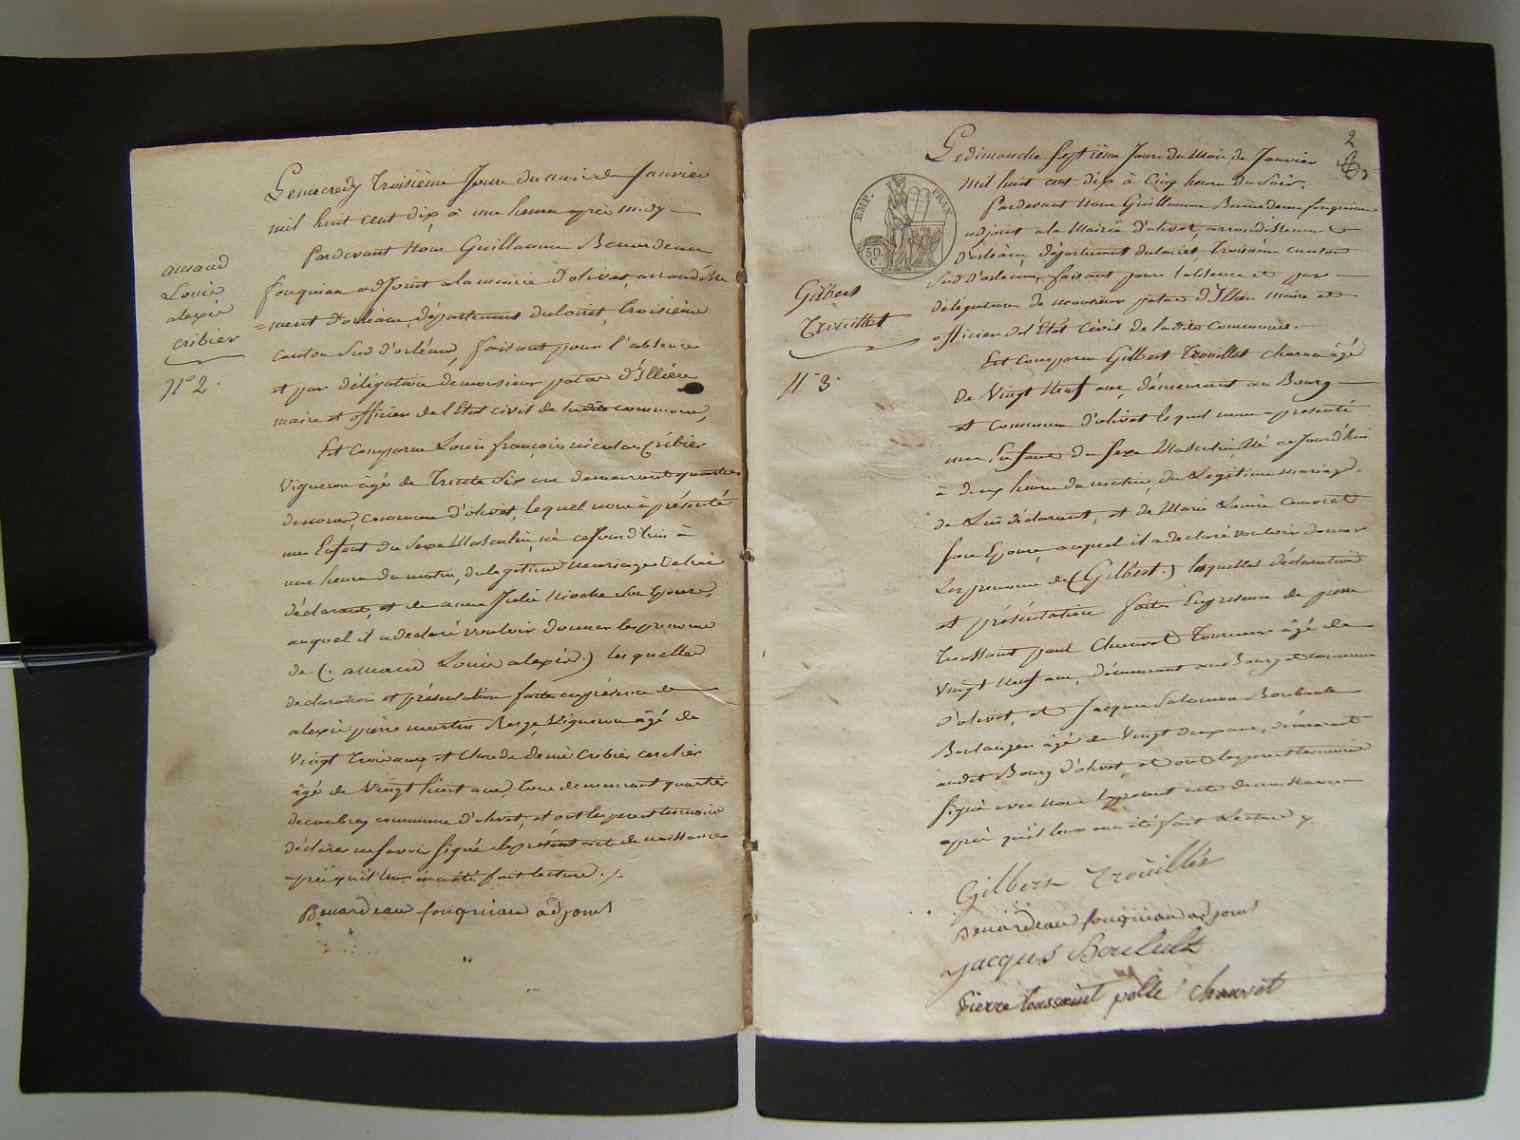 Le mecredy Troisième Jour du mois de Janvier
mil huit cent dix à une heure après midy
Pardevant Nous Guillaume Benardeau
fouqniau adjoint a la mairie d'olivet, arrondisse
=ment d'orléans, département du loiret, troisième
canton Sud d'orléans, faisant pour l'absence
et par délégation de monsieur patas d'Illiers
maire et officier de l'Etat civil de ladite commune,
Est comparu Louis françois nicolas Cribier
Vigneron âgé de Trente Six ans demeurant quartier
commune d'olivet, lequel nous à présenté
un Enfant du Sexe Masculin, né cejourd'hui à
une heure du matin, du legitime mariage de lui
déclarant, et de anne Julie Son Epouse,
auquel il a declaré vouloir donner les prenoms
de (. amand Louis alexis.) lesquelles
declaration et présentation faites en présence de
alexis pierre martin Vigneron âgé de
Vingt Trois ans, et Claude denis Cribier
âgé de Vingt huit ans, tous demeurant quartier
commune d'olivet, et ont les pere et temoins
déclarés ne savoir Signé le présent acte de naissance
après qu'il leur en a été fait lecture ./.
Benardeau fouqniau adjoint
amand
Louis
alexis
cribier
N° 2.
2
Le dimanche Septième Jour du Mois de Janvier
Mil huit cent dix à Cinq heure du Soir.
Pardevant Nous Guillaume Benardeau fouqniau
adjoint a la Mairie d'olivet, arrondissement
d'orléans, département du loiret, Troisième canton
Sud d'orleans, faisant pour l'absence et par
délégation de monsieur patas d'Illiers maire et
officier de l'Etat Civil de ladite Commune.
Est Comparu Gilbert Trouillet âgé
de Vingt Neuf ans, démeurant au Bourg
et commune d'olivet lequel nous a presenté
un Enfant du Sexe Masculin, Né cejourd'hui
à deux heure du matin, du Legitime Mariage
de Lui déclarant, et de Marie Louise
Son Epouse, auquel il a declaré vouloir donner
Les prenoms de (Gilbert.) lesquelles déclaration
et présentation faites En présence de pierre
Toussaint paul Chauvot Tourneur âgé de
Vingt Neuf ans, démeurant aud. Bourg et commune
d'olivet, et Jacques Salomon
Boulanger âgé de Vingt deux ans, démeurant
audit Bourg d'olivet, et ont les pere et temoins
Signé avec Nous le present acte de naissance
après qu'il leur en a été fait Lecture ./.
Gilbert trouillet
Benardeau fouqniau adjoint
Jacques
Pierre toussaint polle chauvot
EMP. FRAN
50 C.
Gilbert
Trouillet
N° 3.